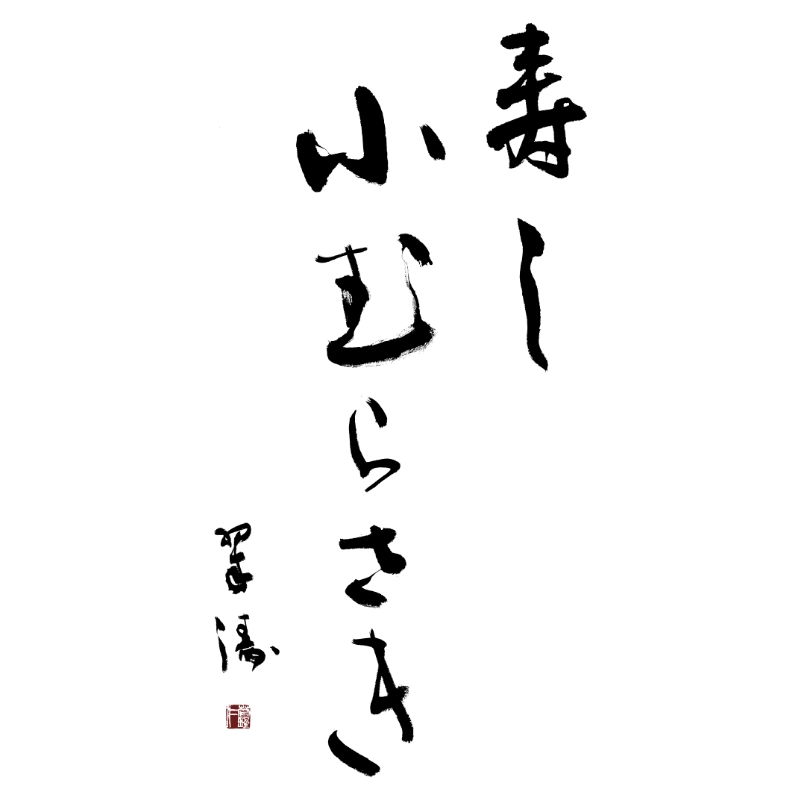 寿し
小むらさき
翠涛